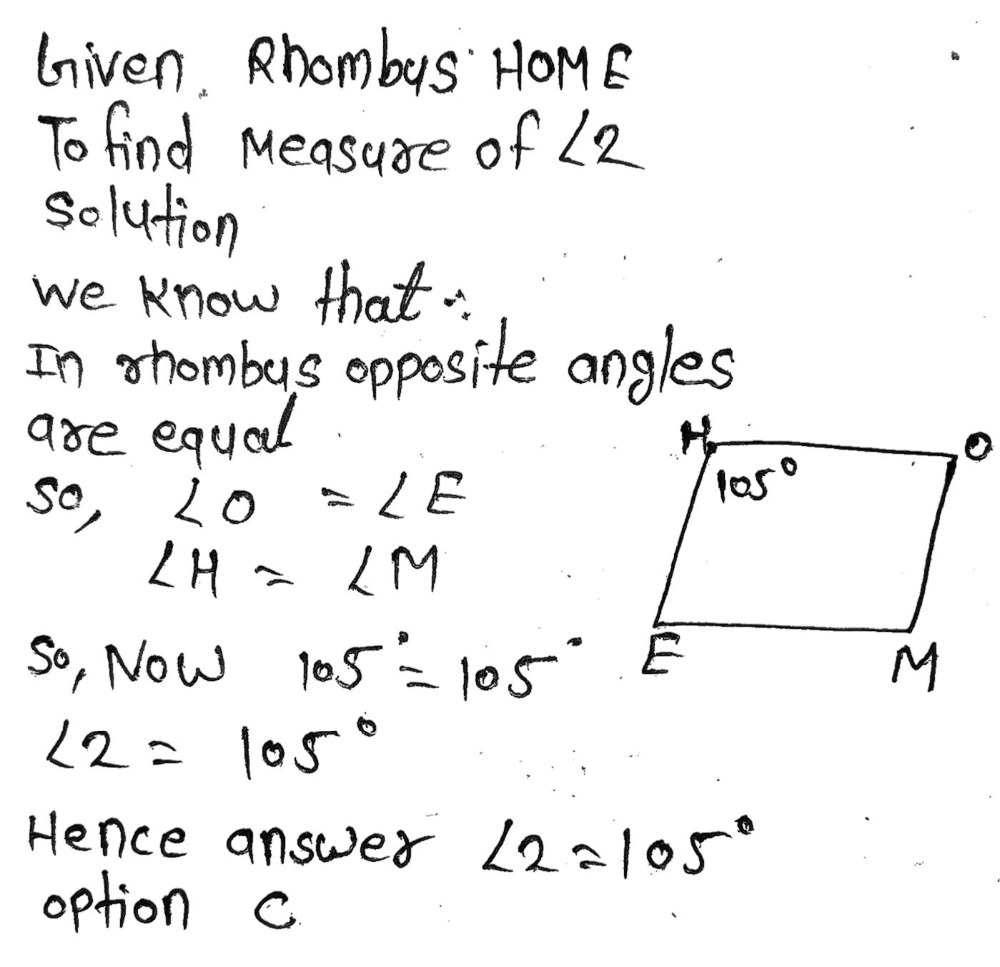 Given. Rhombus HOME
To find Measure of ∠2
Solution
we know that :
In rhombus opposite angles
are equal
So, ∠O = ∠E
∠H = ∠M
So, Now 105° = 105°
∠2 = 105°
Hence answer ∠2 = 105°
option C
H
O
105°
E
M